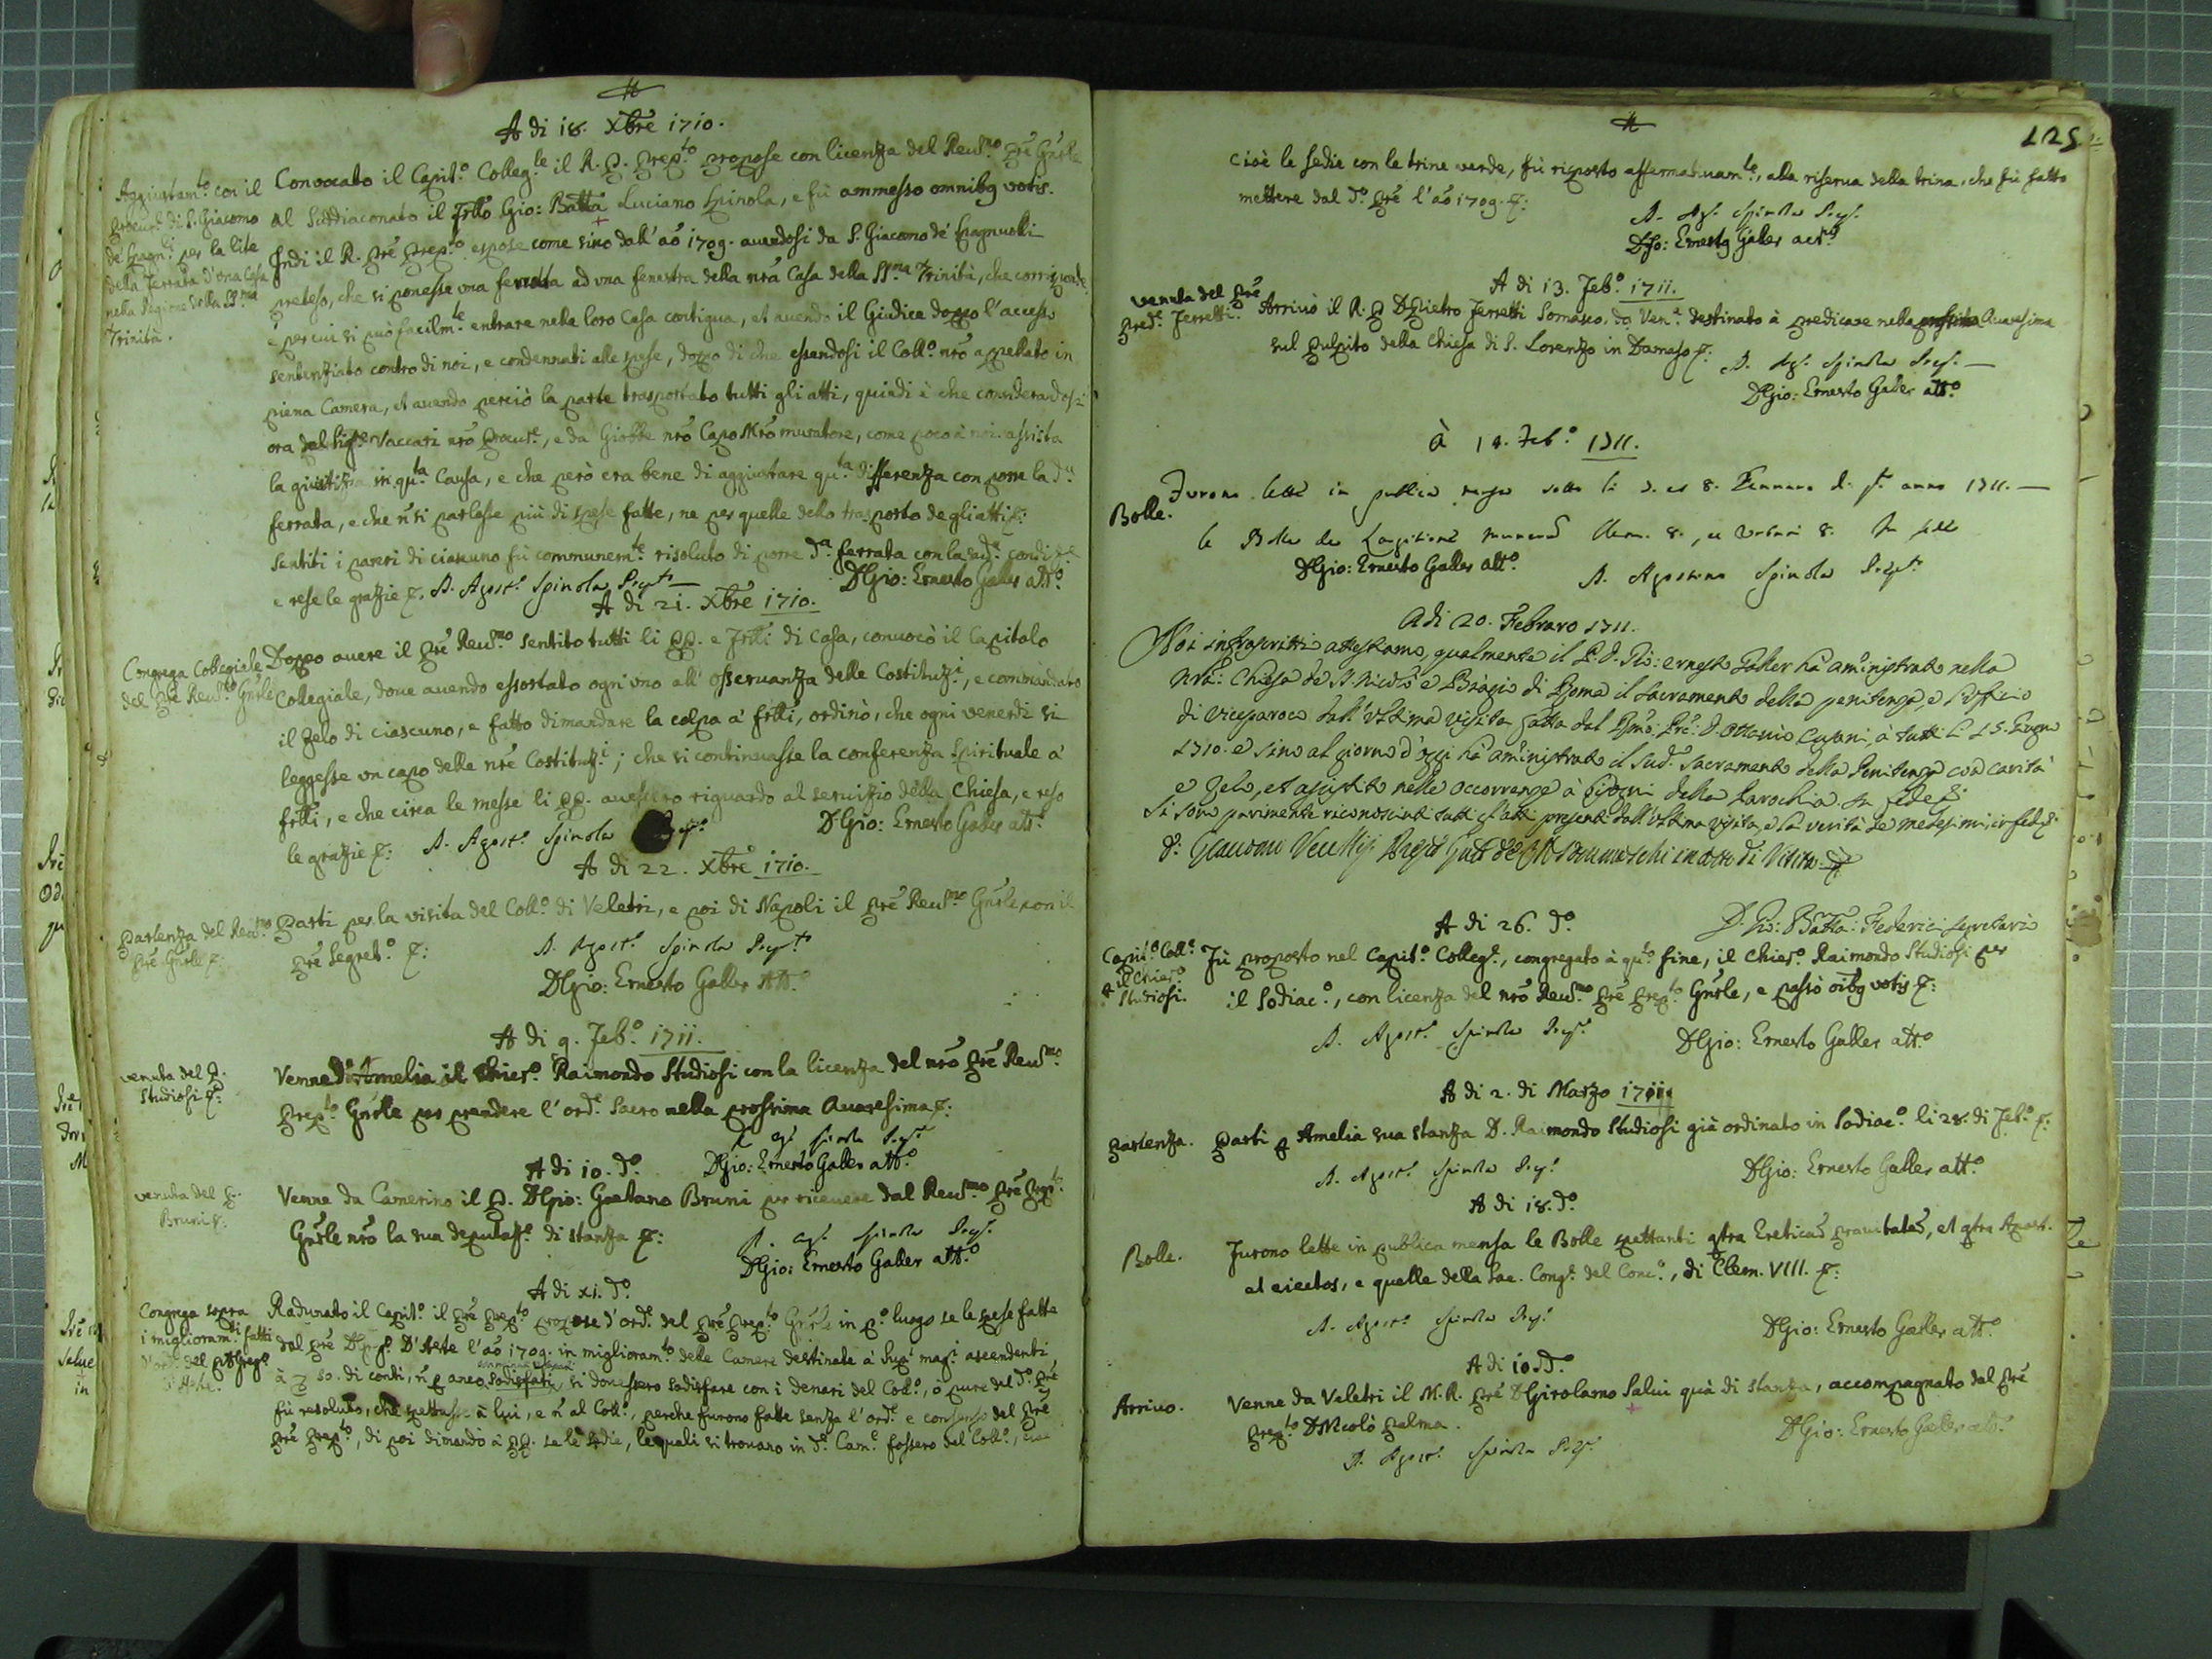 A di 18. Xbre 1710.
Aggiustam.to con il
Procur.e di S. Giacomo
de' Spagn.li per la lite
della Ferrata d'una Casa
nella Regione della SS.ma
Trinità.
Convocato il Capit.o Colleg.le il R. P. Prep.to propose con licenza del Reud.mo Pre Gnrle
al Suddiaconato il Frllo Gio: Batta Luciano Spinola, e fù ammesso omnibq votis.
Indi il R. Pre Prep.to espose come sino dall'aõ 1709. auendosi da S. Giacomo de' Spagnuoli
preteso, che si ponesse una ferrata ad vna fenestra della nrã Casa della SS.ma Trinità, che corrisponde,
e per cui si può facilm.te entrare nella loro Casa contigua, et auendo il Giudice doppo l'accesso
sentenziato contro di noi, e condennati alle spese, doppo di che essendosi il Coll.o nrõ appellato in
piena Camera, et auendo perciò la parte trasportato tutti gli atti, quindi è che considerandosi
ora dal Sig.re Vaccari nrõ Procur.e, e da Giobbe nrõ Capo Mrõ muratore, come poco à noi assista
la giustizia in qu.ta Causa, e che però era bene di aggiustare qu.ta differenza con porre la d.a
ferrata, e che ñ si parlasse più di spese fatte, ne per quelle dello trasporto degli atti &:
sentiti i pareri di ciascuno fù communem.te risoluto di porre d.a ferrata con la sud.a condiz.e
e rese le grazie &. D. Agost.o Spinola Prep.to
D Gio: Ernesto Galler att.o
A di 21. Xbre 1710.
Congrega Collegiale
del Pre Reud.mo Gnrle
Doppo auere il Pre Reud.mo sentito tutti li PP. e Frlli di Casa, conuocò il Capitolo
Collegiale, doue auendo essortato ogni vno all'osseruanza delle Costituz.i, e commendato
il zelo di ciascuno, e fatto dimandare la colpa a' frlli, ordinò, che ogni venerdi si
leggesse vn capo delle nrẽ Costituz.i; che si continuasse la conferenza Spirituale a'
frlli, e che circa le messe li PP. auessero riguardo al seruizio della Chiesa, e reso
le grazie &: D. Agost.o Spinola
D Gio: Ernesto Galler att.o
A di 22. Xbre 1710.
Partenza del Reud.mo
Pre Gnrle &:
Parti per la visita del Coll.o di Veletri, e poi di Napoli il Pre Reud.mo Gnrle con il
Pre Segret.o &:
D. Agost.o Spinola Prep.to
D Gio: Ernesto Galler Att.o
A di 9. Feb.o 1711.
venuta del P.
Studiosi &:
Venne d'Amelia il Chier.o Raimondo Studiosi con la licenza del nrõ Pre Reud.mo
Prep.to Gnrle per prendere l'ord.e Sacro nella prossima Quaresima &:
D. Ag.o Spinola Prep.to
D Gio: Ernesto Galler att.o
A di 10. d.o
venuta del P.
Bruni &.
Venne da Camerino il P. D Gio: Gaetano Bruni per riceuere dal Reud.mo Pre Prep.to
Gnrle nrõ la sua deputaz.e di stanza &:
D. Ag.o Spinola Prep.to
D Gio: Ernesto Galler att.o
A di xi. d.o
Congrega sopra
i miglioram.ti fatti
d'ord.e del P D Greg.o
D'Aste.
Radunato il Capit.o il Pre Prep.to propose d'ord.e del Pre Prep.to Gnrle in p.o luogo se le spese fatte
dal Pre D Greg.o D'Aste l'aõ 1709. in miglioram.to delle Camere destinate a' Sup.i mag.i ascendenti
à 50. di conti, ñ anco sodisfati, si douessero sodisfare con i denari del Coll.o, ò pure del d.o Pre
fù resoluto, che spettasse à lui, e ñ al Coll.o, perche furono fatte senza l'ord.e e consenso del Pre
Pre Prep.to, di poi dimandò à PP. se le sedie, le quali si trouano in d.e Cam.e fossero del Coll.o, cioè
125
cioè le sedie con le trine verde, fù risposto affermatiuam.te, alla riserua della trina, che fù fatto
mettere dal d.o Pre l'aõ 1709. &:
D. Ag.o Spinola Prep.to
D Gio: Ernestq Galler act.s
A di 13. Feb.o 1711.
venuta del Pre
Pred.re Ferretti.
Arriuò il R. P D Pietro Ferretti Somasco, da Ven.a destinato à predicare nella Quaresima
sul pulpito della Chiesa di S. Lorenzo in Damaso &:
D. Ag.o Spinola Prep.to
D Gio: Ernesto Galler att.o
à 18. Feb.o 1711.
Bolle.
Furono lette in publica mensa sotto li et 8. Gennaro anno 1711.
le Bolle de Clem. 8., et Urbani 8. In fede
D Gio: Ernesto Galler att.o
D. Agostino Spinola Prep.to
Adi 20. Febraro 1711.
Noi infrascritti attestiamo, qualmente il P. D. Gio: ernesto Galler hà am̃inistrato nella
nrã: Chiesa de SS. Nicolò e Biagio di Roma il Sacramento della penitenza, e l'offizio
di Viceparoco dall'Vltima visita fatta dal Rmo: Pre: D. Ottauio Cusani, a tutti li 15. Giugno
1710. e sino al giorno d'oggi hà am̃inistrato il Sud.o Sacramento della Penitenza con carità
e Zelo, et assistito nelle occorrenze à bisogni della Parochia. In fede &:
Si sono parimente riconosciuti tutti gl'atti presenti dall'vltima visita, e la verità de medesimi, in fede &:
D: Girolamo Prep.to Gnle de Somaschi in atto di Visita &
D. Gio: Batta: Federici Secretario
A di 26. d.o
Capit.o Coll.e
p il Chier.o
Studiosi.
Fù proposto nel Capit.o Colleg.e, congregato à qu.to fine, il Chier.o Raimondo Studiosi per
il Sodiac.o, con licenza del nrõ Reud.mo Pre Prep.to Gnrle, e passò oĩbq votis &:
D. Agost.o Spinola Prep.to
D Gio: Ernesto Galler att.o
A di 2. di Marzo 1711
Partenza.
Parti p Amelia sua stanza D. Raimondo Studiosi già ordinato in Sodiac.o li 28. di Feb.o &:
D. Agost.o Spinola Prep.to
D Gio: Ernesto Galler att.o
A di 18. d.o
Bolle.
Furono lette in publica mensa le Bolle spettanti qtra Ereticã prauitatẽ, et qtra Apost.
et eiectos, e quelle della Sac. Cong.e del Conc.o, di Clem. VIII. &:
D. Agost.o Spinola Prep.to
D Gio: Ernesto Galler att.o
A di d.o
Arriuo.
Venne da Veletri il M. R. Pre D Girolamo Salui quà di stanza, accompagnato dal Pre
Prep.to D Nicolò Palma.
D. Agost.o Spinola Prep.to
D Gio: Ernesto Galler att.o